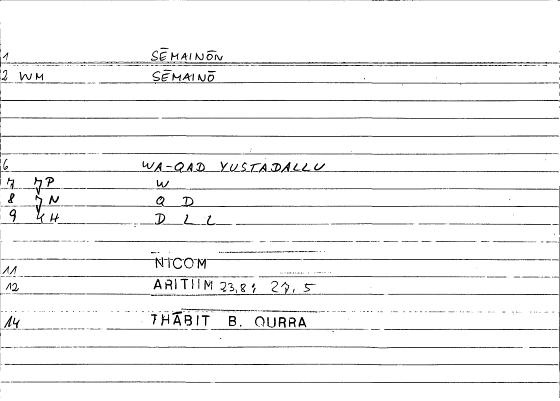 1 SĒMAINŌN
2 WM SĒMAINŌ
6 WA-QAD YUSTADALLU
7 P W
8 N Q D
9 H D L L
11 NICOM
12 ARITIIM 23,8; 27,5
14 THĀBIT B. QURRA